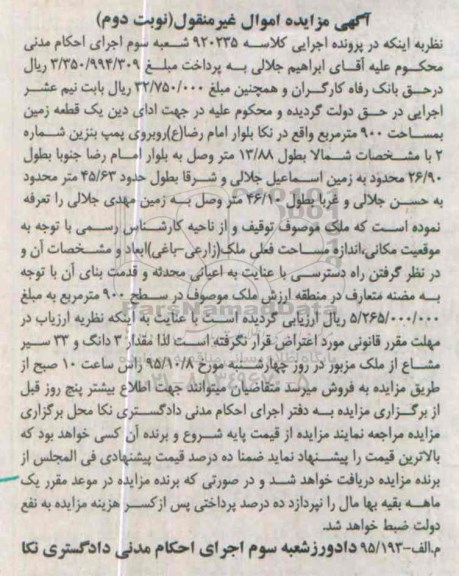 آگهی مزایده اموال غیرمنقول(نوبت دوم)
نظربه اینکه در پرونده اجرایی کلاسه ۹۲۰۲۳۵ شعبه سوم اجرای احکام مدنی
محکوم علیه آقای ابراهیم جلالی به پرداخت مبلغ ۳/۳۵۰/۹۹۴/۳۰۹ ریال
درحق بانک رفاه کارگران و همچنین مبلغ ۳۲/۷۵۰/۰۰۰ ریال بابت نیم عشر
اجرایی در حق دولت گردیده و محکوم علیه در جهت ادای دین یک قطعه زمین
بمساحت ۹۰۰ مترمربع واقع در نکا بلوار امام رضا(ع)روبروی پمپ بنزین شماره
۲ با مشخصات شمالا بطول ۱۳/۸۸ متر وصل به بلوار امام رضا جنوبا بطول
۲۶/۹۰ محدود به زمین اسماعیل جلالی و شرقا بطول حدود ۴۵/۶۳ متر محدود
به حسن جلالی و غربا بطول ۴۶/۱۰ متر وصل به زمین مهدی جلالی را تعرفه
نموده است که ملک موصوف توقیف و از ناحیه کارشناس رسمی با توجه به
موقعیت مکانی،اندازه مساحت فعلی ملک(زارعی-باغی)ابعاد و مشخصات آن و
در نظر گرفتن راه دسترسی با عنایت به اعیانی محدثه و قدمت بنای آن با توجه
به مضنه متعارف در منطقه ارزش ملک موصوف در سطح ۹۰۰ مترمربع به مبلغ
۵/۲۶۵/۰۰۰/۰۰۰ ریال ارزیابی گردیده است با عنایت به اینکه نظریه ارزیاب در
مهلت مقرر قانونی مورد اعتراض قرار نگرفته است لذا مقدار ۳ دانگ و ۳۳ سیر
مشاع از ملک مزبور در روز چهارشنبه مورخ ۹۵/۱۰/۸ راس ساعت ۱۰ صبح از
طریق مزایده به فروش میرسد متقاضیان میتوانند جهت اطلاع بیشتر پنج روز قبل
از برگزاری مزایده به دفتر اجرای احکام مدنی دادگستری نکا محل برگزاری
مزایده مراجعه نمایند مزایده از قیمت پایه شروع و برنده آن کسی خواهد بود که
بالاترین قیمت را پیشنهاد نماید ضمنا ده درصد قیمت پیشنهادی فی المجلس از
برنده مزایده دریافت خواهد شد و در صورتی که برنده مزایده در موعد مقرر یک
ماهه بقیه بها مال را نپردازد ده درصد پرداختی پس ازکسر هزینه مزایده به نفع
دولت ضبط خواهد شد.
م.الف-۹۵/۱۹۳ دادورزشعبه سوم اجرای احکام مدنی دادگستری نکا